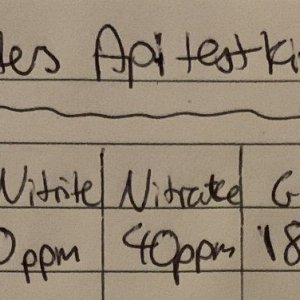 tes Api testki
Nitrite Nitrate G
0ppm 40ppm 18